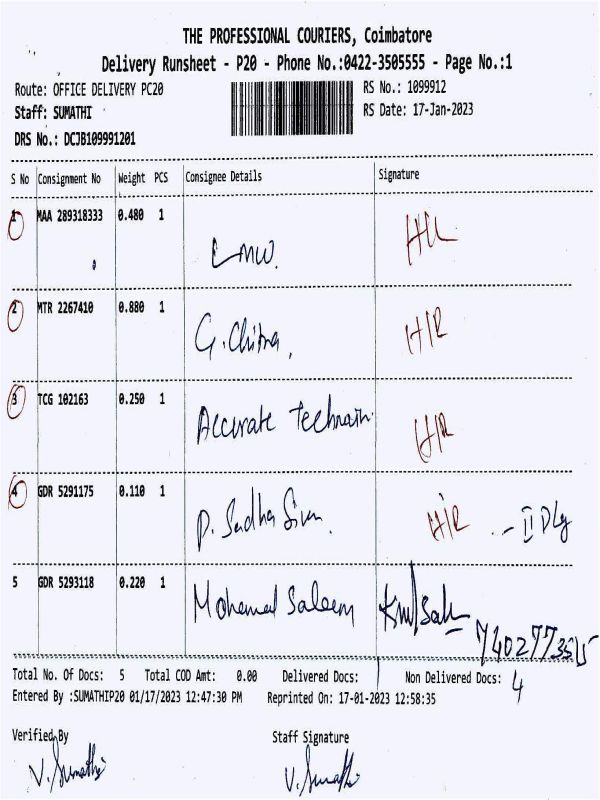 THE PROFESSIONAL COURIERS, Coimbatore
Delivery Runsheet - P20 - Phone No.:0422-3505555 - Page No.:1
Route: OFFICE DELIVERY PC20 RS No.: 1099912
Staff: SUMATHI RS Date: 17-Jan-2023
DRS No.: DCJB109991201
S No Consignment No Weight PCS Consignee Details Signature
1 MAA 289318333 0.480 1 LMW.
2 MTR 2267410 0.880 1 G. Chitra, H/R
3 TCG 102163 0.250 1 Accurate H/R
4 GDR 5291175 0.110 1 P. Sadha Sivan. H/R - II Dly
5 GDR 5293118 0.220 1 Mohamed Saleem
Total No. Of Docs: 5 Total COD Amt: 0.00 Delivered Docs: 1 Non Delivered Docs: 4
Entered By :SUMATHIP20 01/17/2023 12:47:30 PM Reprinted On: 17-01-2023 12:58:35
Verified By Staff Signature
V. Sumathi V. Sumathi